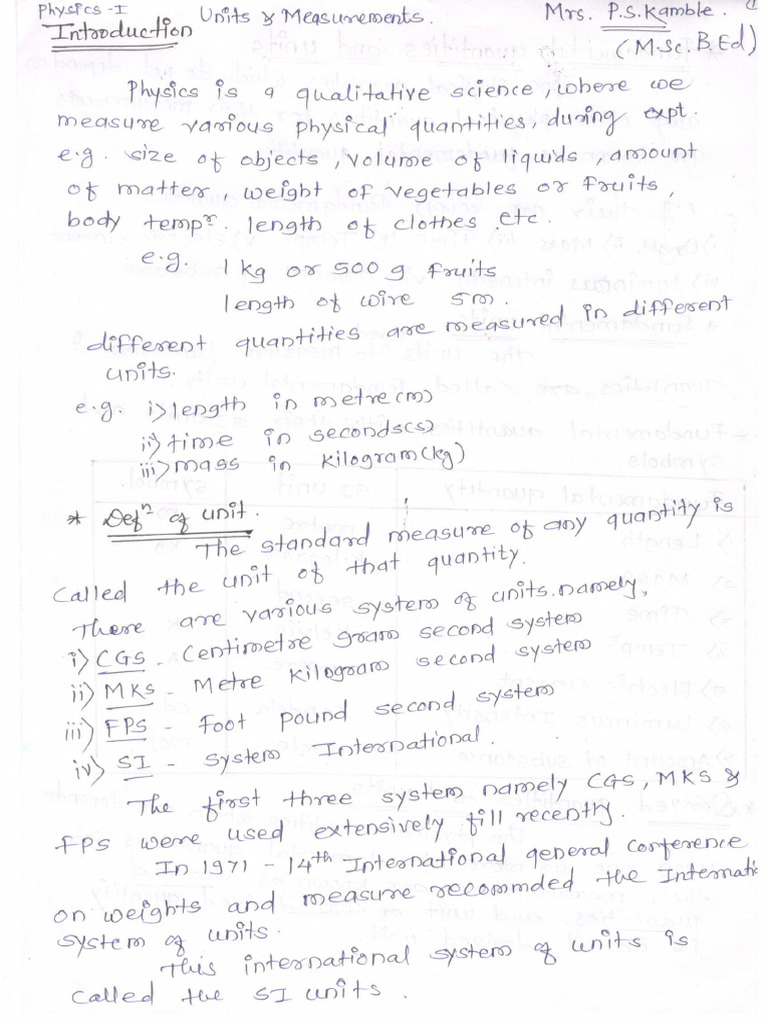 Physics-I Units & Measurements. Mrs. P.S. Kamble.
Introduction (M.Sc. B.Ed)
Physics is a qualitative science, where we
measure various physical quantities, during expt.
e.g. size of objects, volume of liquids, amount
of matter, weight of vegetables or fruits,
body tempr. length of clothes etc.
e.g. 1 kg or 500 g fruits
length of wire 5m.
different quantities are measured in different
units.
e.g. i) length in metre (m)
ii) time in seconds(s)
iii) mass in kilogram (kg)
* Defⁿ of unit.
The standard measure of any quantity is
called the unit of that quantity.
There are various system of units. namely,
i) CGS - Centimetre gram second system
ii) MKS - Metre kilogram second system
iii) FPS - Foot pound second system
iv) SI - System International.
The first three system namely CGS, MKS &
FPS were used extensively till recently.
In 1971 - 14th International general conference
on weights and measure recommded the Internatio
system of units.
This international system of units is
called the SI units.